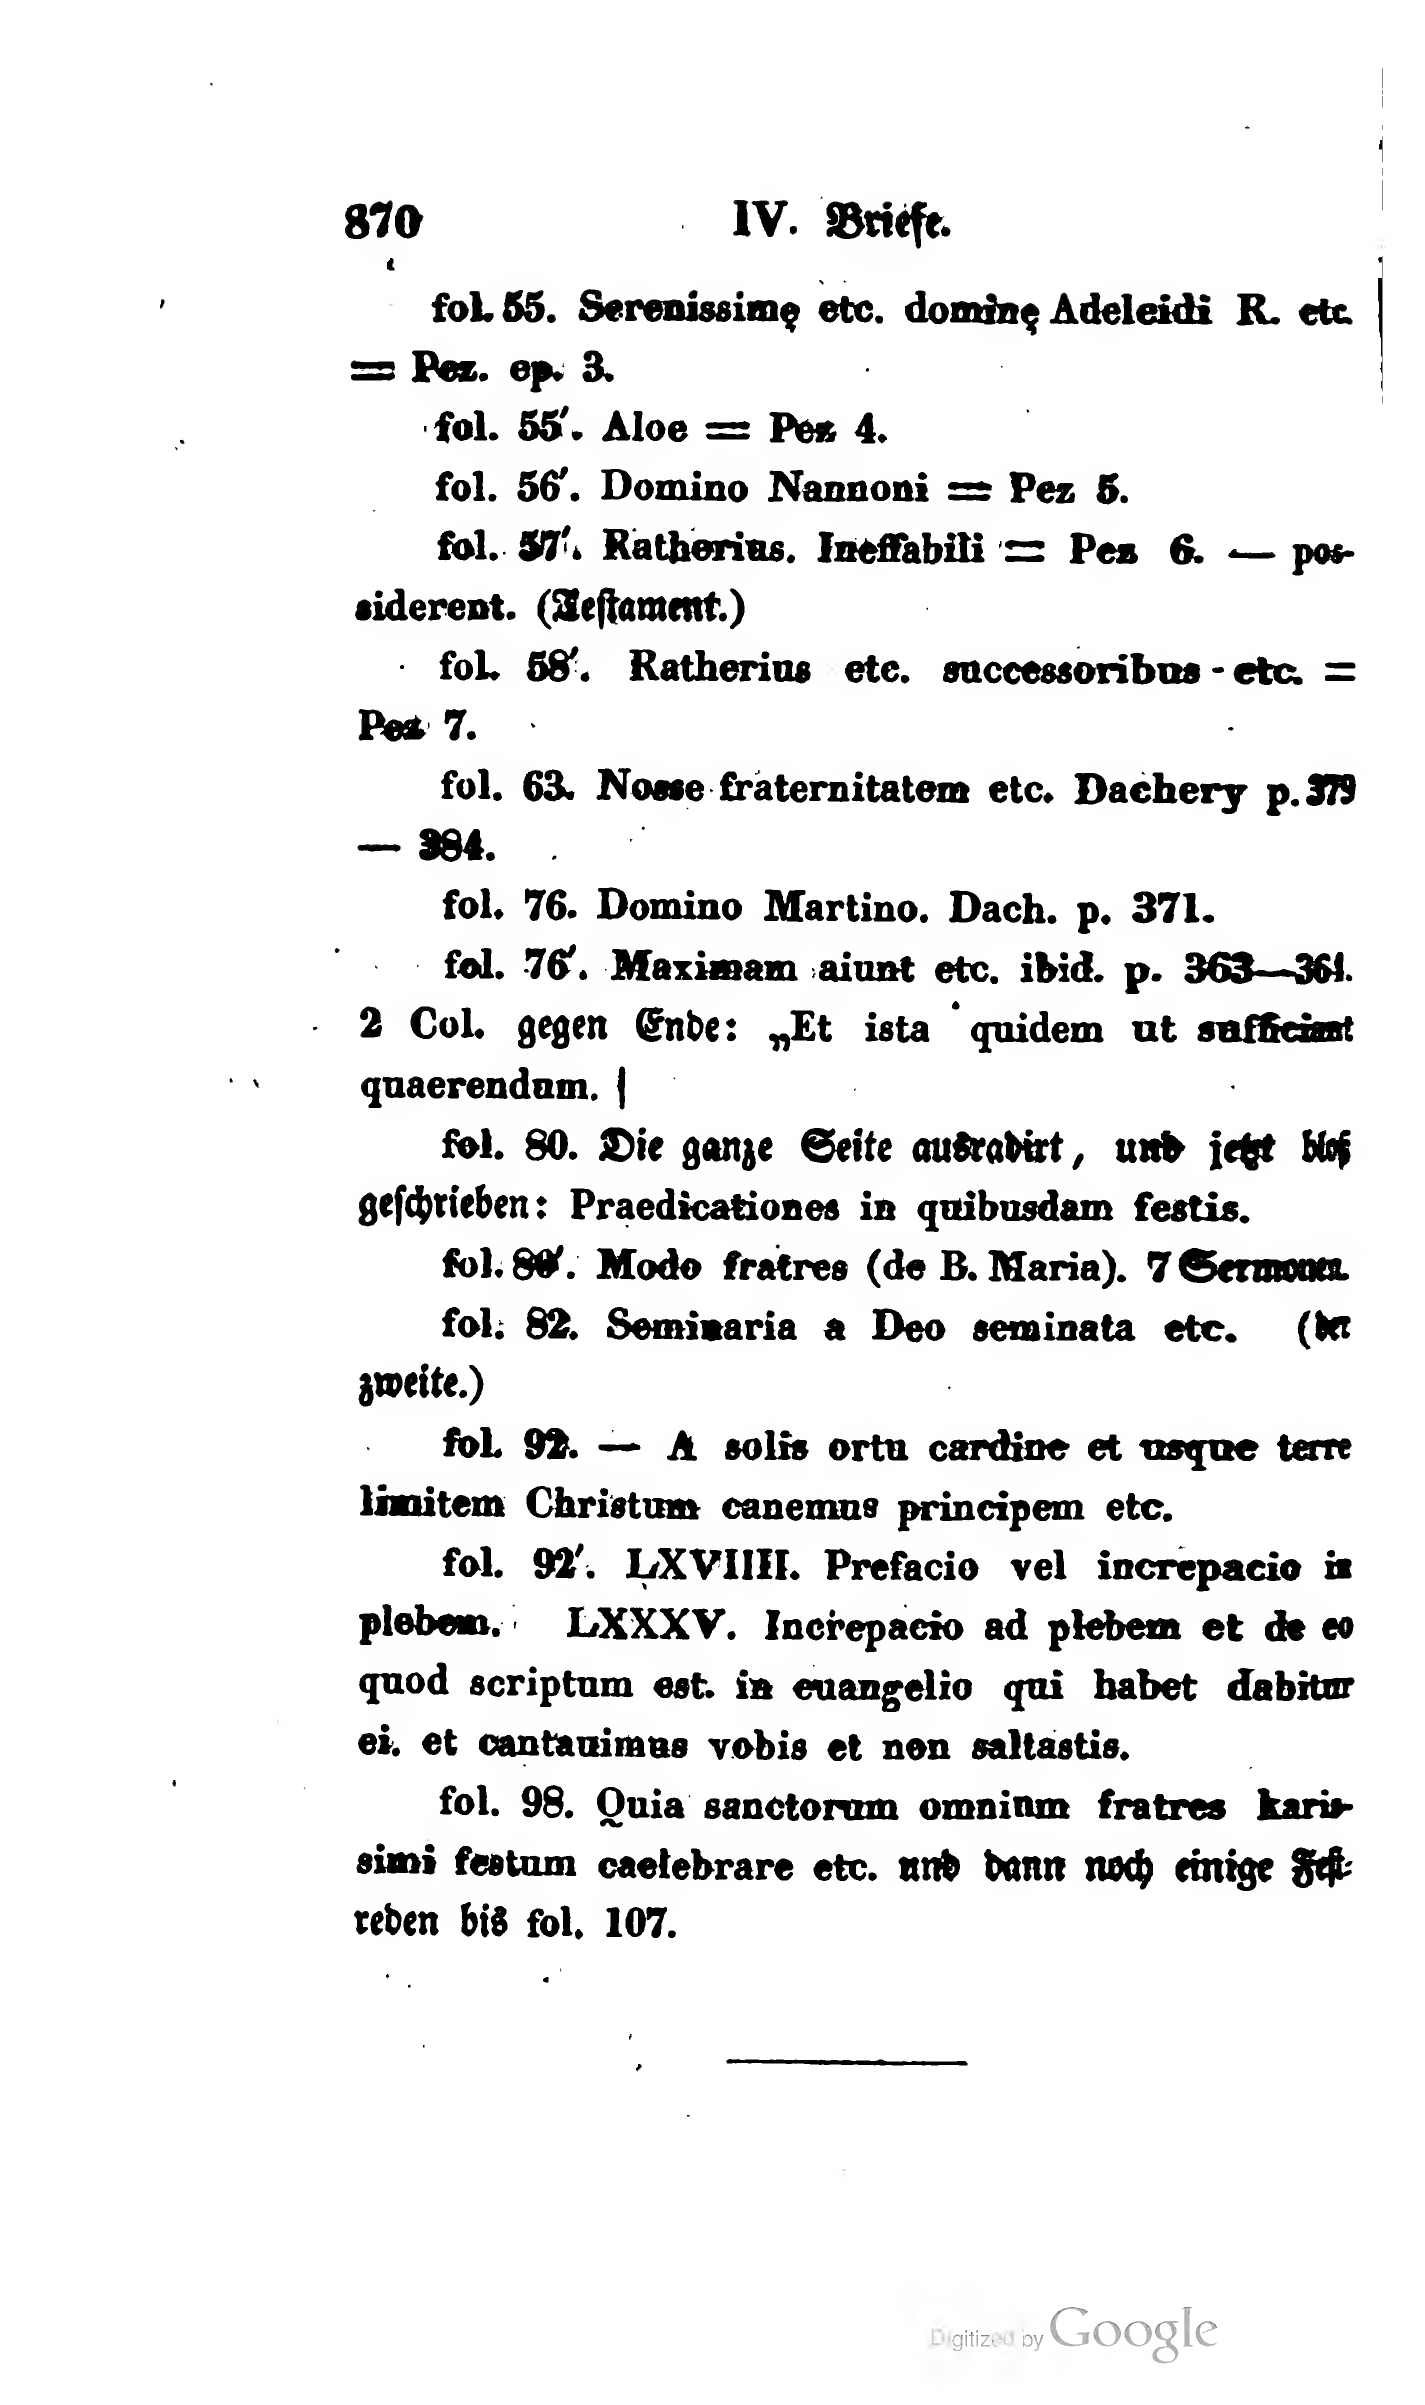 870 IV. Briefe.
fol. 55. Serenissimę etc. dominę Adeleidi R. etc.
= Pez. ep. 3.
fol. 55′. Aloe = Pez 4.
fol. 56′. Domino Nannoni = Pez 5.
fol. 57′. Ratherius. Ineffabili = Pez 6. — pos-
siderent. (Testament.)
fol. 58′. Ratherius etc. successoribus etc. =
Pez 7.
fol. 63. Nosse fraternitatem etc. Dachery p. 379
— 384.
fol. 76. Domino Martino. Dach. p. 371.
fol. 76′. Maximam aiunt etc. ibid. p. 363—364.
2 Col. gegen Ende: „Et ista quidem ut sufficiant
quaerendum. |
fol. 80. Die ganze Seite ausradirt, und jetzt blos
geschrieben: Praedicationes in quibusdam festis.
fol. 80′. Modo fratres (de B. Maria). 7 Sermonen.
fol. 82. Seminaria a Deo seminata etc. (der
zweite.)
fol. 92. — A solis ortu cardine et usque terre
limitem Christum canemus principem etc.
fol. 92′. LXVIIII. Prefacio vel increpacio in
plebem. LXXXV. Increpacio ad plebem et de eo
quod scriptum est. in euangelio qui habet dabitur
ei. et cantauimus vobis et non saltastis.
fol. 98. Quia sanctorum omnium fratres karis-
simi festum caelebrare etc. und dann noch einige Fest-
reden bis fol. 107.
Digitized by Google